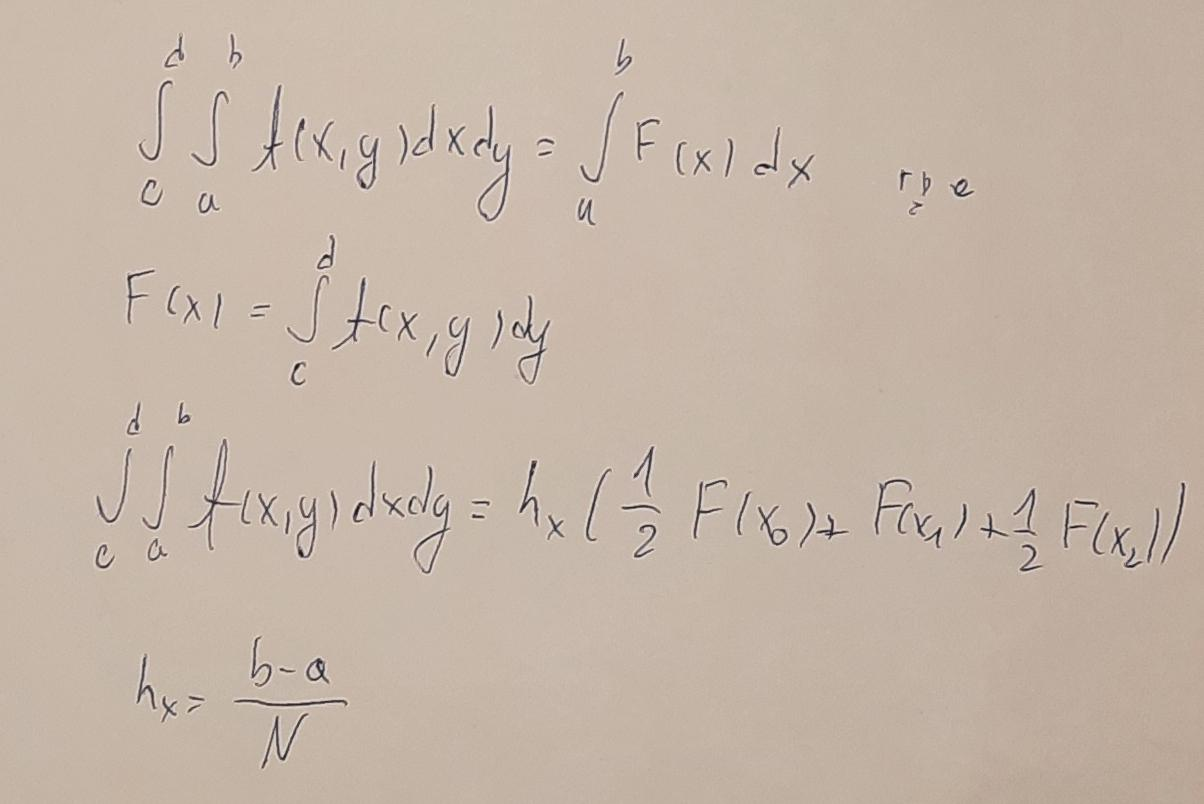 ∫_c^d ∫_a^b f(x,y)dxdy = ∫_a^b F(x)dx где
F(x) = ∫_c^d f(x,y)dy
∫_c^d ∫_a^b f(x,y)dxdy = h_x(1/2 F(x_0) + F(x_1) + 1/2 F(x_2))
h_x = (b-a)/N